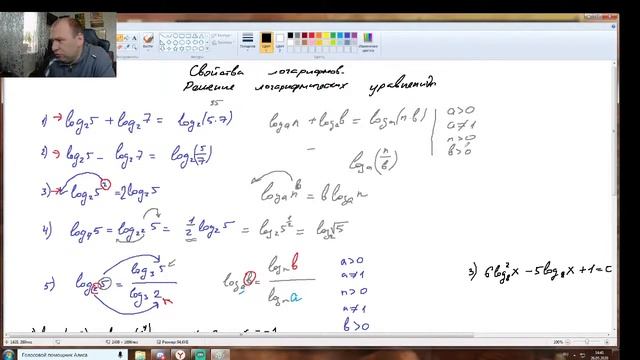 Свойства логарифмов.
Решение логарифмических уравнений
55
1) → log₂5 + log₂7 = log₂(5·7)
logₐn + logₐb = logₐ(n·b)
a>0
a≠1
n>0
b>0
2) → log₂5 − log₂7 = log₂(5/7)
−
logₐ(n/b)
3) → log₂5² = 2log₂5
logₐnᵇ = b logₐn
4) log₄5 = log₂²5 = 1/2 log₂5 = log₂5^(1/2) = log₂√5
5) log₂5 = log₃5 / log₃2
n
logₐb = logₙb / logₙa
a>0
a≠1
n>0
n≠1
b>0
3) 6log₈²x − 5log₈x + 1 = 0
Голосовой помощник Алиса
100%
14:41
26.05.2020